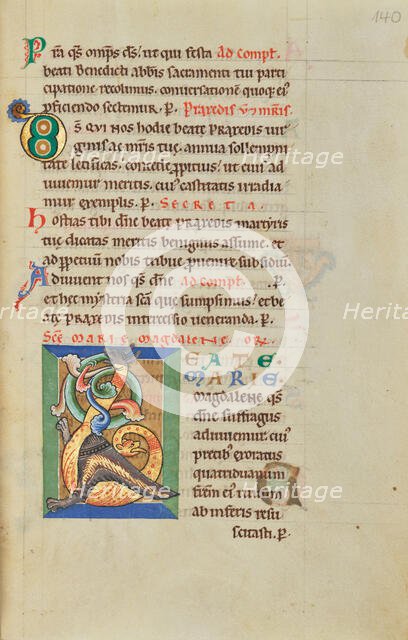 140
Pr̄a qs̄ om̄ps d̄s/ ut qui festa Ad Compl̄.
beati Benedicti abb̄is sacramenti tui parti
cipatione recolimus, conuersationē quoq; ei'
p̄ficiendo sectemur. P̄. Praxedis V. m̄ris.
DS QUI NOS hodie beatę Praxedis uir
ginis ac m̄ris tuę, annua sollemni
tate lętificas, concede p̄pitius/ ut cui' ad
iuuemur meritis, eius castitatis irradia
mur exemplis. P̄. SECRETA.
hostias tibi dn̄e beatę praxedis martyris
tuę dicatas meritis benignus assume, et
ad perpetuum nobis tribue p̄uenire subsidiū.
Adiuuent nos qs̄ dn̄e Ad Compl̄. P̄.
et hęc mysteria sc̄a que sumpsimus/ et be
atę PRAXEDIS intercessio ueneranda. P̄.
SC̄E MARIE MAGDALENE OR̄.
BEATE
MARIE
MAGDALENĘ qs̄
dn̄e suffragiis
adiuuemur. cui'
precib' exoratus
quatriduanum
frēm ei'
ab inferis resu
scitasti. P̄.
Heritage
Heritage
Heritage
Heritage
Heritage
Heritage